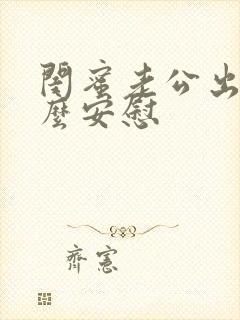 閨蜜老公出
麼安慰
齊憲